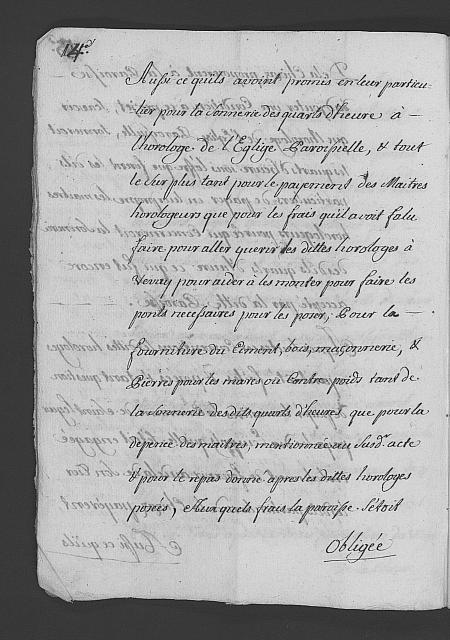 14.
Aussi ce quils avoint promis en leur particu-
lier pour la Sonnerie des quarts d'heure à —
l'horologe de l'Eglise Paroissielle, & tout
le Surplus tant pour le payement des Maitres
horologeurs que pour les frais qu'il avoit falu
faire pour aller querir les dittes horologes à
Vevay pour aider à les monter pour faire les
ponts necessaires pour les poser; Pour la —
fourniture du Ciment, bois, maçonnerie, &
Pierres pour les mares ou Contre poids tant de
la Sonnerie des dits quarts d'heures que pour la
depence des maitres, mentionnée au Susd.t acte
& pour le repas donné apres les dittes horologes
posées, Aux quels frais la paroisse S'étoit
Obligée